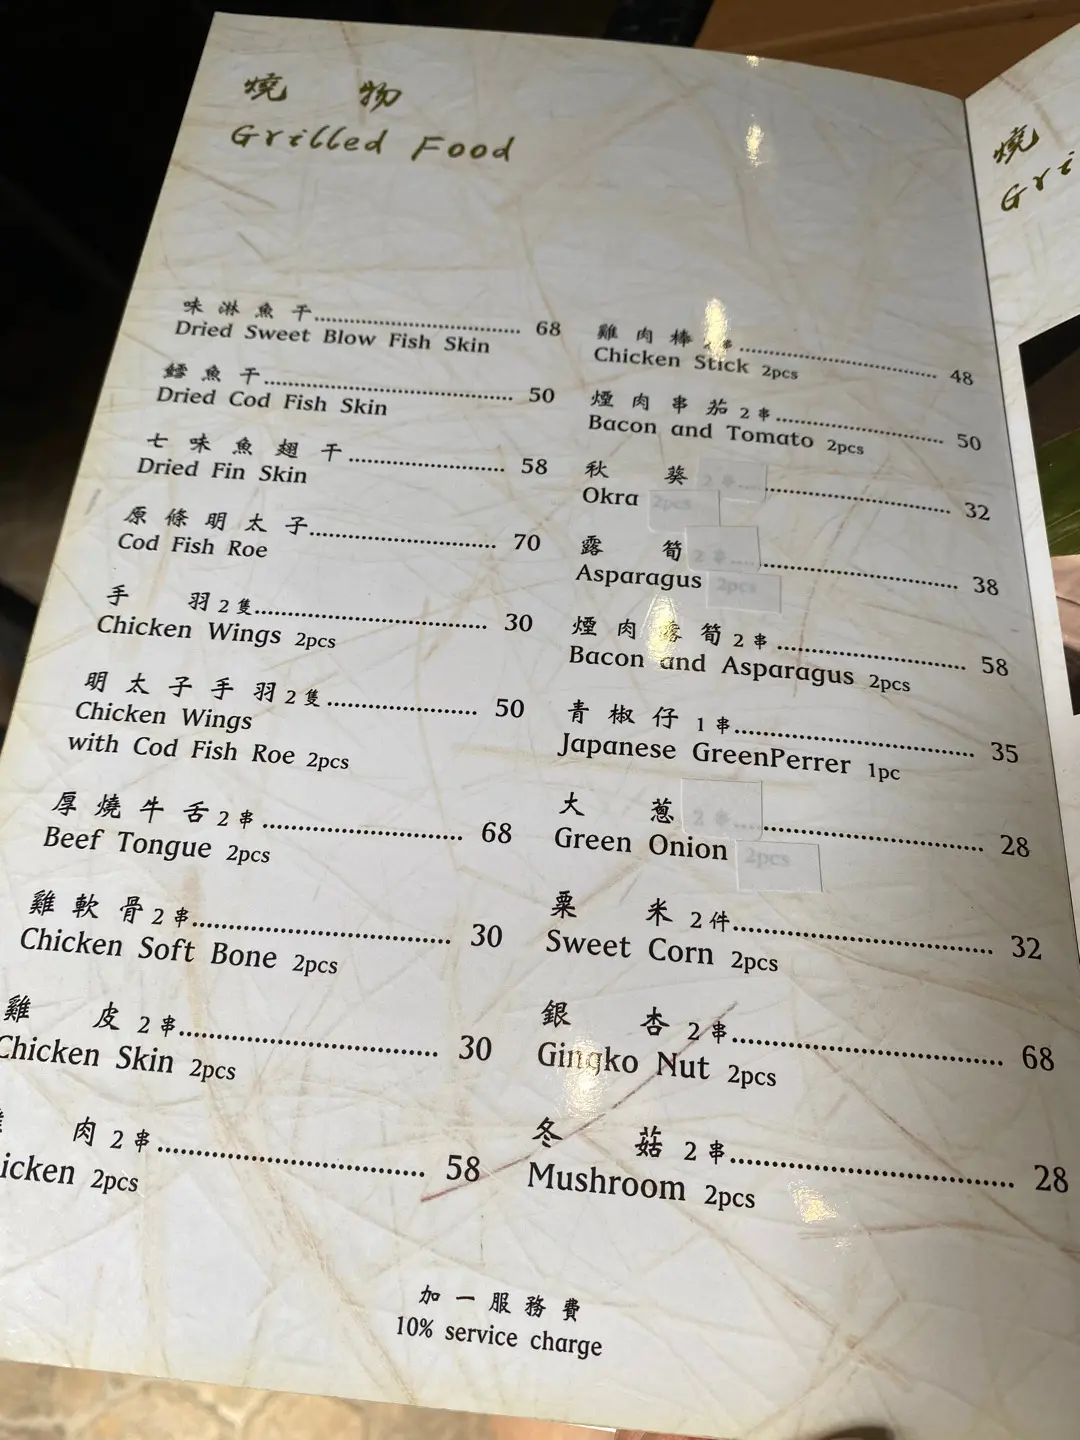 燒物
Grilled Food
味淋魚干 68
Dried Sweet Blow Fish Skin
鱈魚干 50
Dried Cod Fish Skin
七味魚翅干 58
Dried Fin Skin
原條明太子 70
Cod Fish Roe
手羽2隻 30
Chicken Wings 2pcs
明太子手羽2隻 50
Chicken Wings
with Cod Fish Roe 2pcs
厚燒牛舌2串 68
Beef Tongue 2pcs
雞軟骨2串 30
Chicken Soft Bone 2pcs
雞皮2串 30
Chicken Skin 2pcs
肉2串 58
icken 2pcs
雞肉棒2串 48
Chicken Stick 2pcs
煙肉串茄2串 50
Bacon and Tomato 2pcs
秋葵2串 32
Okra 2pcs
露筍2串 38
Asparagus 2pcs
煙肉露筍2串 58
Bacon and Asparagus 2pcs
青椒仔1串 35
Japanese GreenPerrer 1pc
大蔥2串 28
Green Onion 2pcs
粟米2件 32
Sweet Corn 2pcs
銀杏2串 68
Gingko Nut 2pcs
冬菇2串 28
Mushroom 2pcs
加一服務費
10% service charge
燒
Gri